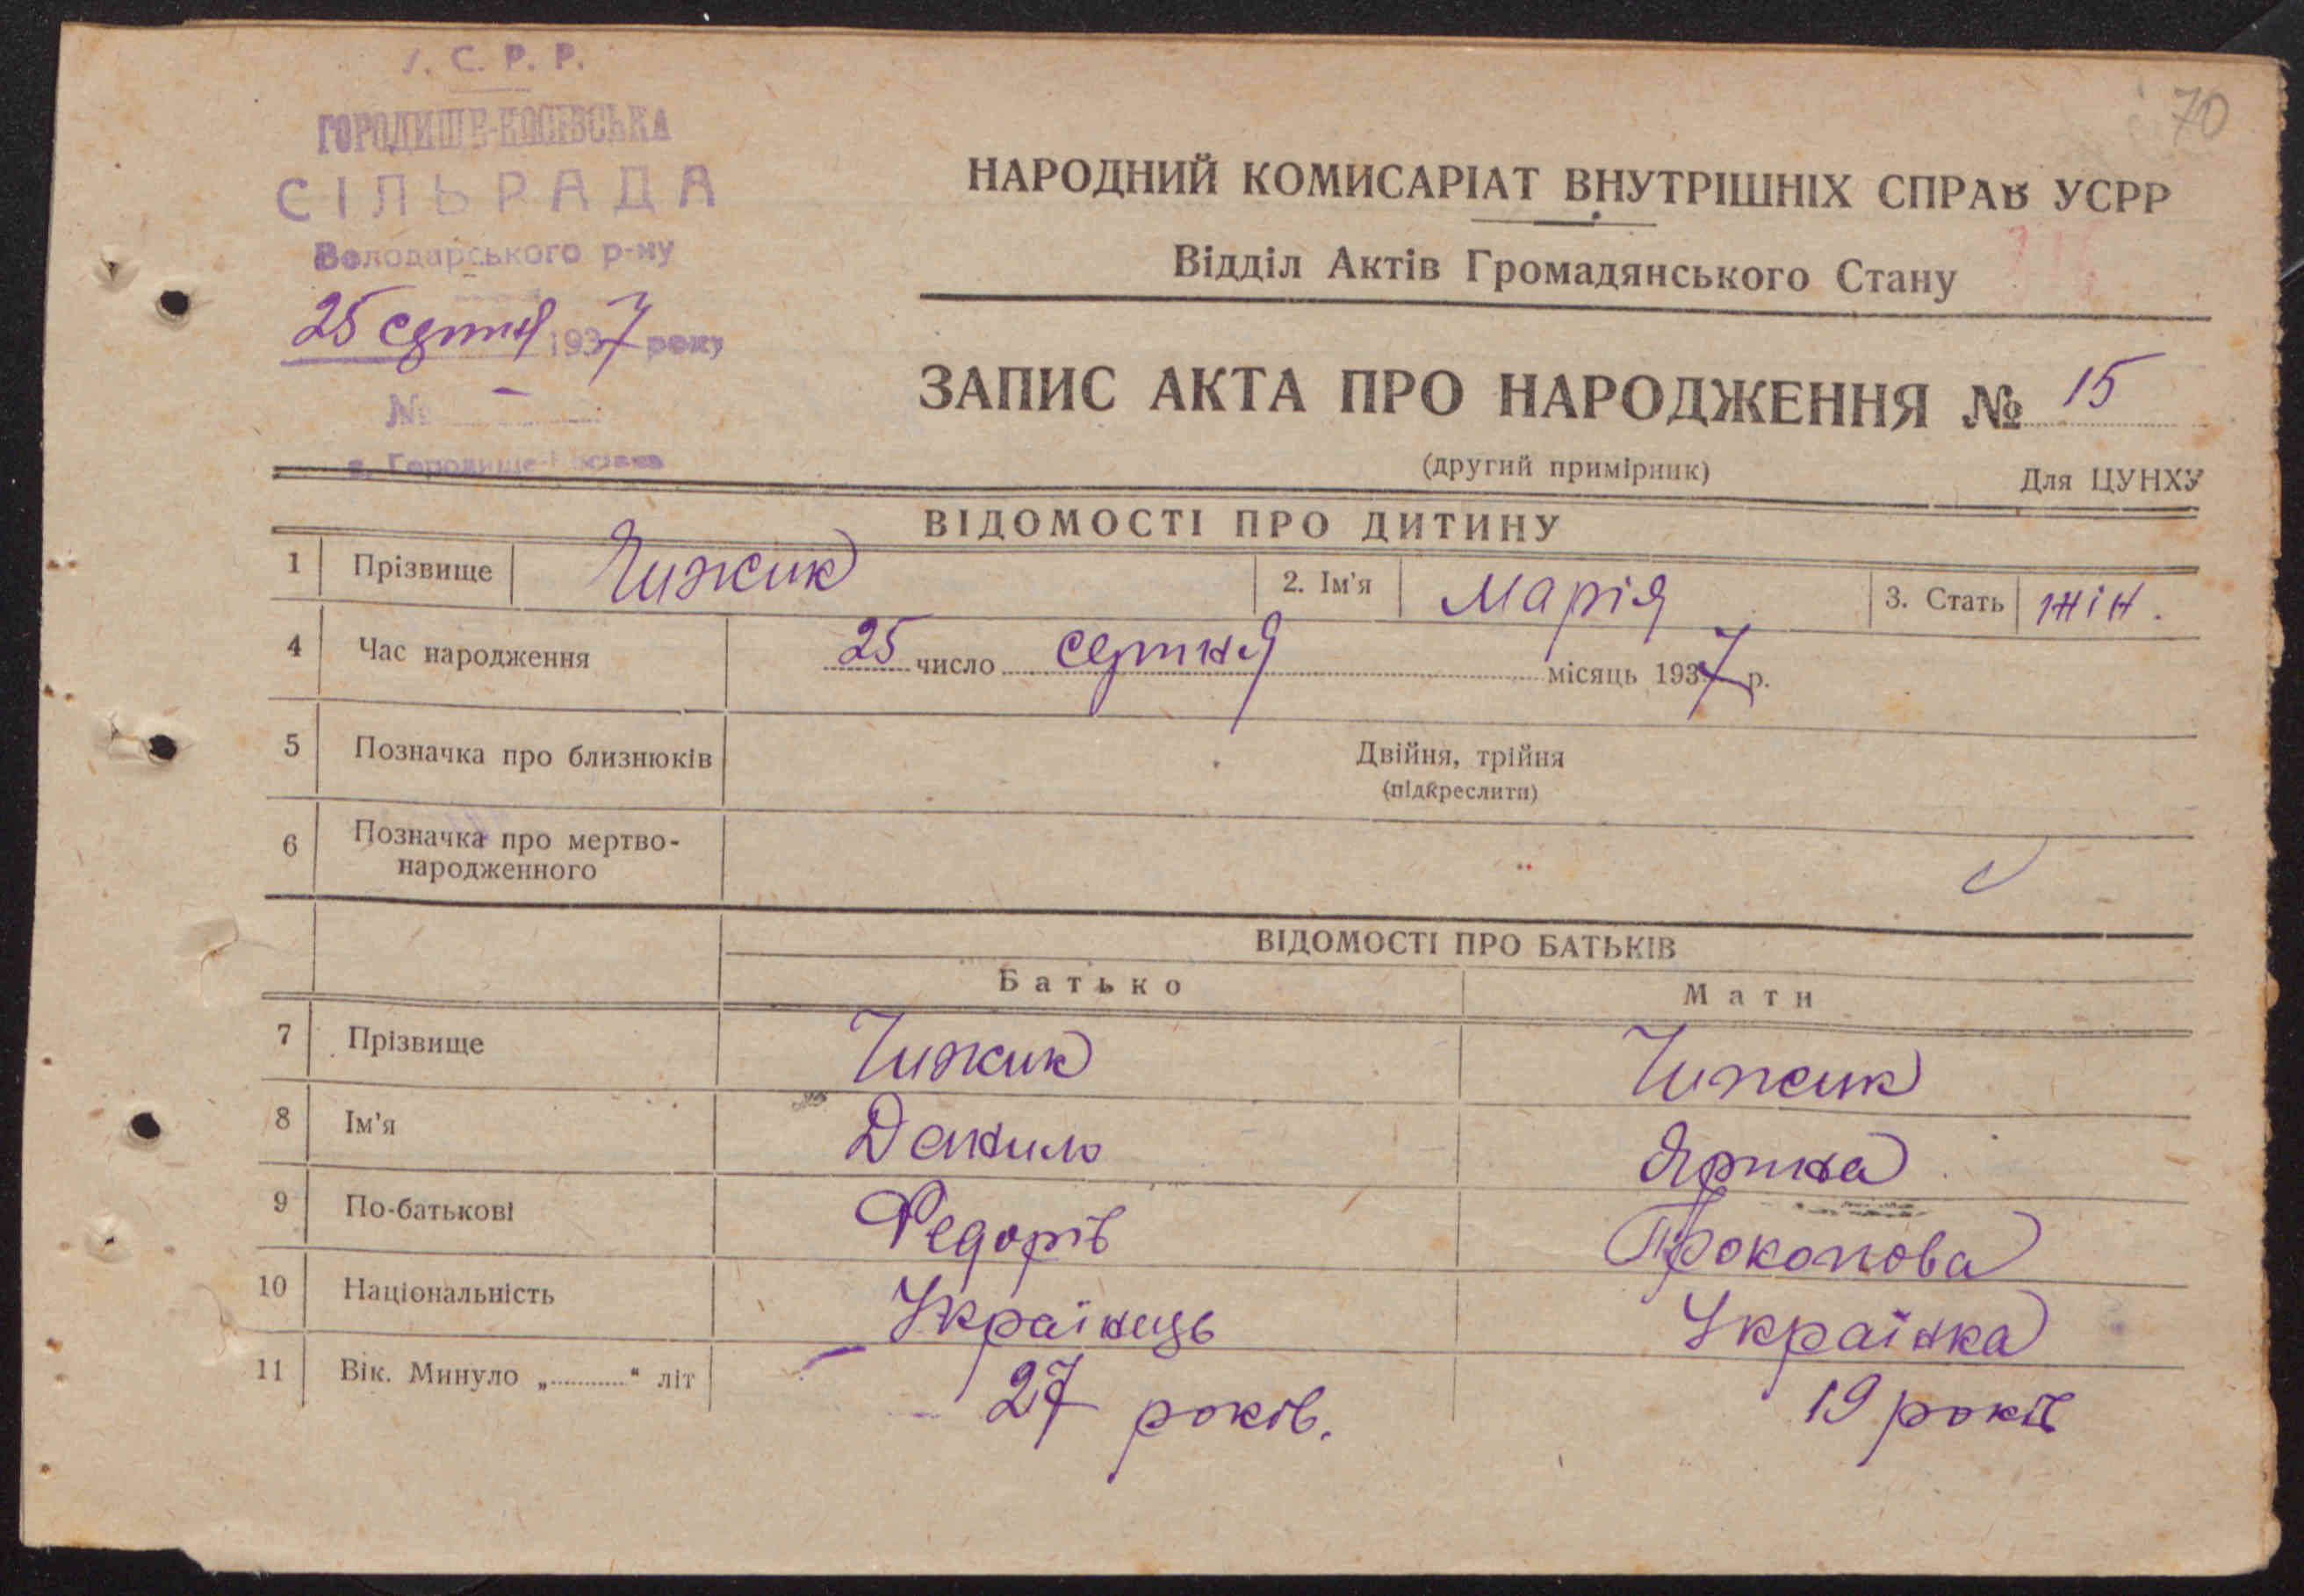 У. С. Р. Р.
ГОРОДИЩЕ-КОСІВСЬКА
СІЛЬРАДА
Володарського р-ну
25 серпня 1937 року
№ -
с. Городище-Косівка
70
НАРОДНИЙ КОМИСАРІАТ ВНУТРІШНІХ СПРАВ УСРР
Відділ Актів Громадянського Стану
ЗАПИС АКТА ПРО НАРОДЖЕННЯ № 15
(другий примірник) Для ЦУНХУ
ВІДОМОСТІ ПРО ДИТИНУ
1 Прізвище Чижик 2. Ім'я Марія 3. Стать жін.
4 Час народження 25 число серпня місяць 1937 р.
5 Позначка про близнюків Двійня, трійня
(підкреслити)
6 Позначка про мертво-
народженного
ВІДОМОСТІ ПРО БАТЬКІВ
Батько Мати
7 Прізвище Чижик Чижик
8 Ім'я Данило Ярина
9 По-батькові Федорів Прокопова
10 Національність Українець Українка
11 Вік. Минуло „..........“ літ 27 років. 19 років